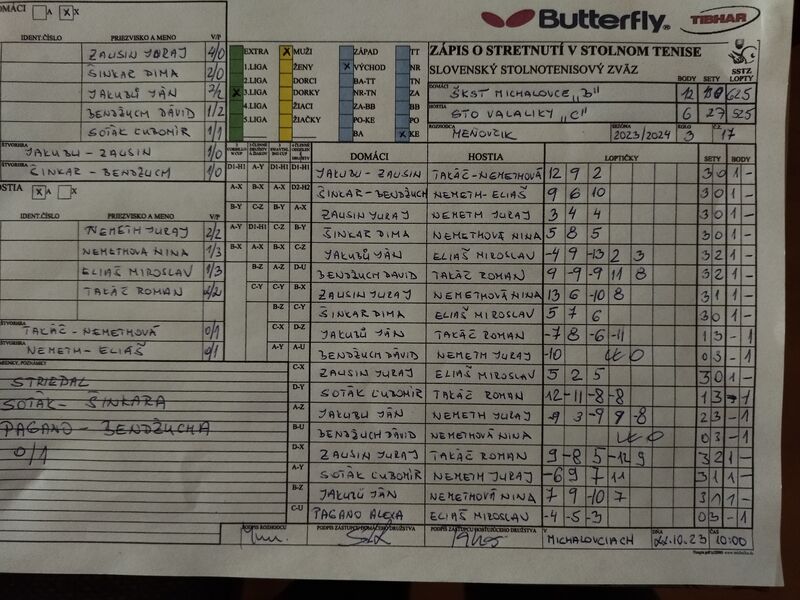 Butterfly® TIBHAR
DOMÁCI A X X
IDENT.ČÍSLO PRIEZVISKO A MENO V/P
ZAUSIN JURAJ 4/0
ŠINKAR DIMA 2/0
JAKUBU JÁN
BENDŽUCH DÁVID 1/2
SOTÁK ĽUBOMÍR 1/1
ŠTVORHRA
JAKUBU - ZAUSIN 1/0
ŠTVORHRA
ŠINKAR - BENDŽUCH 1/0
HOSTIA X
IDENT.ČÍSLO PRIEZVISKO A MENO V/P
NEMETH JURAJ 2/2
NEMETHOVÁ NINA 1/3
ELIAŠ MIROSLAV 1/3
TAKÁČ ROMAN 2/2
ŠTVORHRA
TAKÁČ - NEMETHOVÁ 0/1
ŠTVORHRA
NEMETH - ELIÁŠ 0/1
STRIEDAL
SOTÁK - ŠINKARA
PAGANO - BENDŽUCHA
0/1
EXTRA X MUŽI ZÁPAD TT
1.LIGA ŽENY X VÝCHOD NR
2.LIGA DORCI BA-TT TN
X 3.LIGA DORKY NR-TN ZA
4.LIGA ŽIACI ZA-BB BB
5.LIGA ŽIAČKY PO-KE PO
BA X KE
ZÁPIS O STRETNUTÍ V STOLNOM TENISE
SLOVENSKÝ STOLNOTENISOVÝ ZVÄZ
SSTZ
BODY SETY LOPTY
DOMÁCI ŠKST MICHALOVCE „B" 12 625
HOSTIA STO VALALIKY „C" 6 27 525
ROZHODCA MEŇOVČIK SEZÓNA 2023/2024 KOLO 3 Č.Z. 17
DOMÁCI HOSTIA LOPTIČKY SETY BODY
D1-H1 A-Y D1-H1 D1-H1 JAKUBU - ZAUSIN TAKÁČ - NEMETHOVÁ 12 9 2 3 0 1 -
A-X B-X A-X D2-H2 ŠINKAR - BENDŽUCH NEMETH - ELIÁŠ 9 6 10 3 0 1 -
B-Y C-Z B-Y A-X ZAUSIN JURAJ NEMETH JURAJ 3 4 4 3 0 1 -
A-Y D1-H1 C-Z B-Y ŠINKAR DIMA NEMETHOVÁ NINA 5 8 5 3 0 1 -
B-X A-X B-X C-Z JAKUBŮ JÁN ELIÁŠ MIROSLAV -4 9 -13 2 3 3 2 1 -
B-Z A-Z D-U BENDŽUCH DAVID TAKÁČ ROMAN 9 -9 -9 11 8 3 2 1 -
C-Y C-Y B-X ZAUSIN JURAJ NEMETHOVÁ NINA 13 6 -10 8 3 1 1 -
B-Z C-Y ŠINKAR DIMA ELIAŠ MIROSLAV 5 7 6 3 0 1 -
C-X D-Z JAKUBŮ JÁN TAKÁČ ROMAN -7 8 -6 -11 1 3 - 1
A-Y A-U BENDŽUCH DÁVID NEMETH JURAJ -10 WO 0 3 - 1
C-X ZAUSIN JURAJ ELIAŠ MIROSLAV 5 2 5 3 0 1 -
D-Y SOTÁK ĽUBOMÍR TAKÁČ ROMAN 12 -11 -8 -8 1 3 - 1
A-Z JAKUBU JÁN NEMETH JURAJ 3 -9 9 -8 2 3 - 1
B-U BENDŽUCH DÁVID NEMETHOVÁ NINA WO 0 3 - 1
D-X ZAUSIN JURAJ TAKÁČ ROMAN 9 -8 5 -12 9 3 2 1 -
A-Y SOTÁK ĽUBOMÍR NEMETH JURAJ -6 9 7 11 3 1 1 -
B-Z JAKUBŮ JÁN NEMETHOVÁ NINA 7 9 -10 7 3 1 1 -
C-U PAGANO ALEXA ELIAŠ MIROSLAV -4 -5 -3 0 3 - 1
PODPIS ROZHODCU PODPIS ZÁSTUPCU DOMÁCEHO DRUŽSTVA PODPIS ZÁSTUPCU HOSŤUJÚCEHO DRUŽSTVA V MICHALOVCIACH DŇA 22.10.23 ČAS 10:00